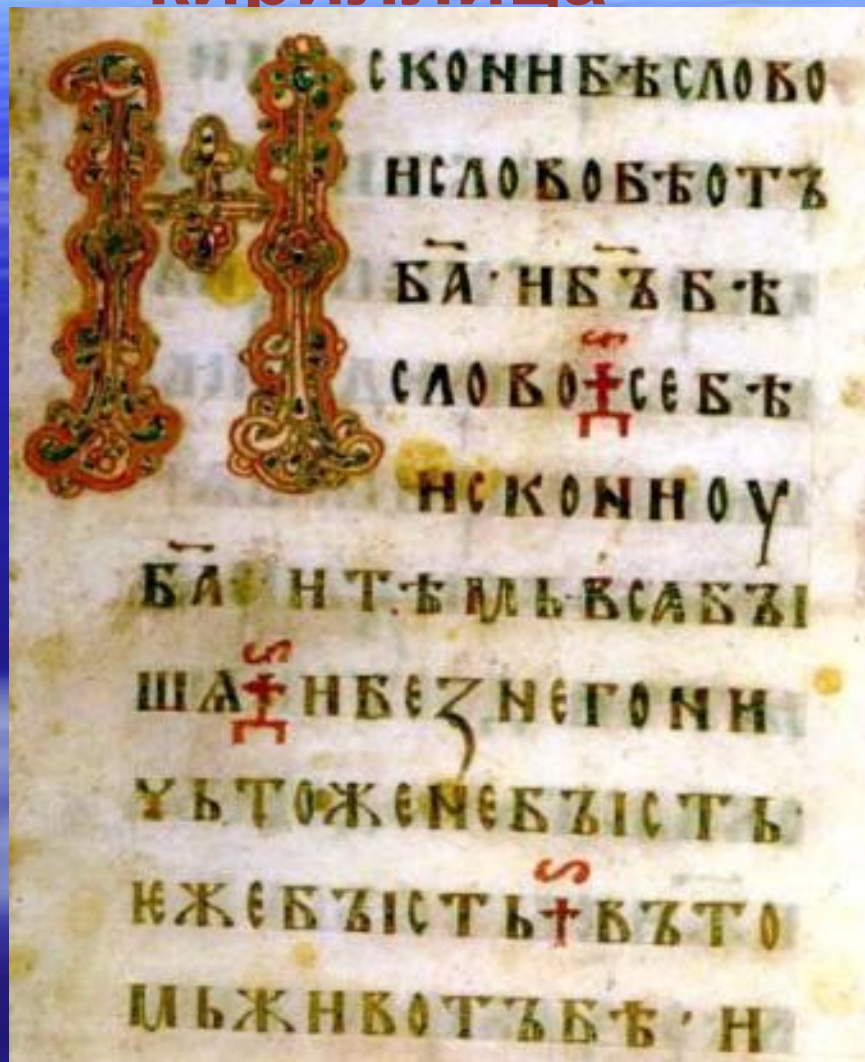 кириллица
Искони бѣ слово
и слово бѣ отъ
Б҃а · и Б҃ъ бѣ
слово се бѣ
искони оу
Б҃а и тѣмь вса бꙑ
шѧ и без него ни
чьтоже не бꙑсть ·
ѥже бꙑсть въ то
мь животъ бѣ · и